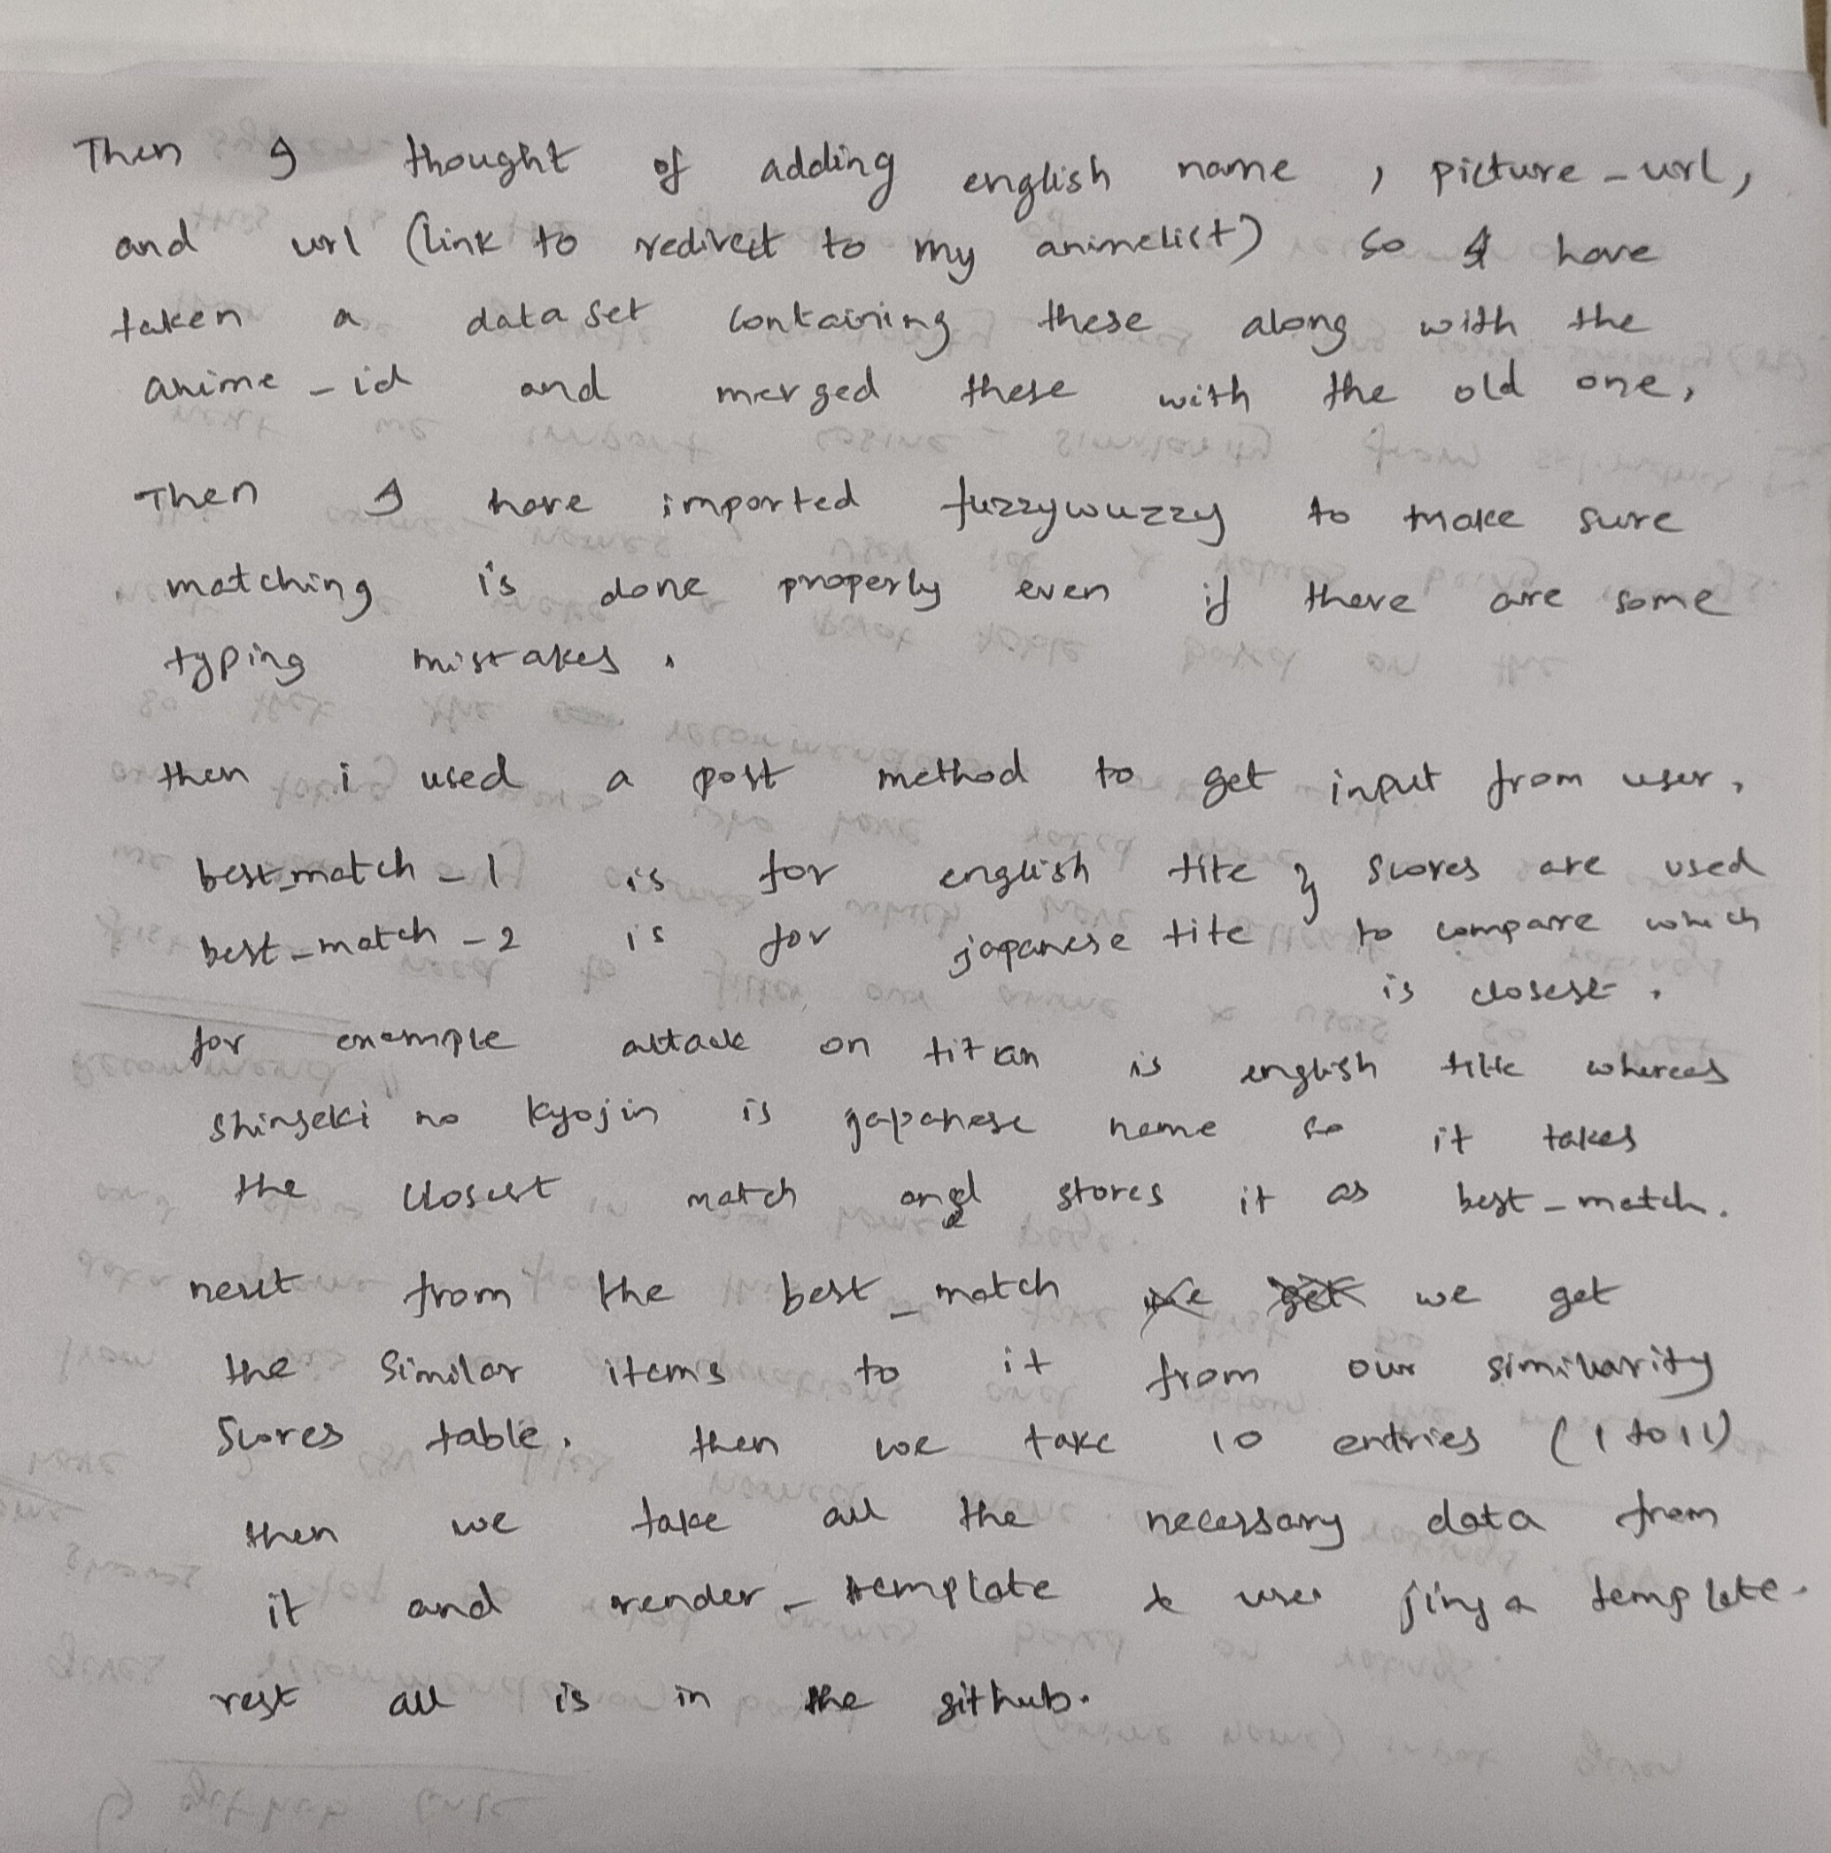 Then I thought of adding english name , picture_url,
and url (link to redirect to my animelist) so I have
taken a data set containing these along with the
anime_id and merged these with the old one,
Then I have imported fuzzywuzzy to make sure
matching is done properly even if there are some
typing mistakes .
then i used a post method to get input from user,
best_match_1 is for english tite } scores are used
best_match_2 is for japanese tite to compare which
is closest .
for example attack on titan is english title whereas
shingeki no kyojin is japanese name so it takes
the closest match and stores it as best_match.
next from the best_match we get we get
the similar items to it from our similarity
scores table. then we take 10 entries (1 to 11)
then we take all the necessary data from
it and render_template & uses jinja template.
rest all is in the github.